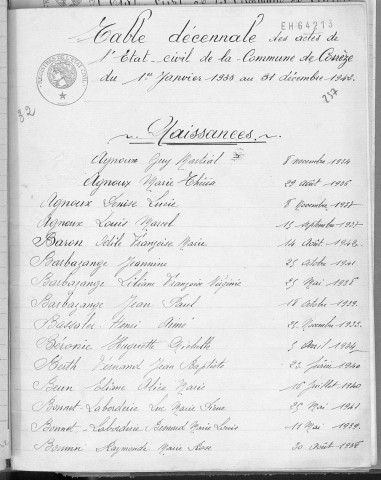 EH64213
Table décennale des actes de
l'Etat-civil de la Commune de Corrèze
du 1er Janvier 1933 au 31 décembre 1942.
237
32
Naissances.
Agnoux Guy Martial 8 novembre 1934
Agnoux Marie Thérèse 29 août 1936
Agnoux Denise Lucie 8 Novembre 1937
Agnoux Louis Marcel 15 septembre 1937
Baron Odile Françoise Marie 14 Août 1942
Barbazange Jeannine 25 octobre 1941
Barbazange Liliane Françoise Virginie 25 Mai 1938
Barbazange Jean Paul 18 octobre 1939
Bassaler Henri Aimé 23 Novembre 1933
Béronie Huguette Michelle 5 Avril 1934
Berth Fernand Jean Baptiste 22 Juin 1940
Beun Eliane Alice Marie 16 Juillet 1940
Bonnet-Laborderie Luc Marie 25 Mai 1941
Bonnet-Laborderie Bernard Marie Louis 11 Mai 1939
Raymonde Marie Rose 20 Août 1936